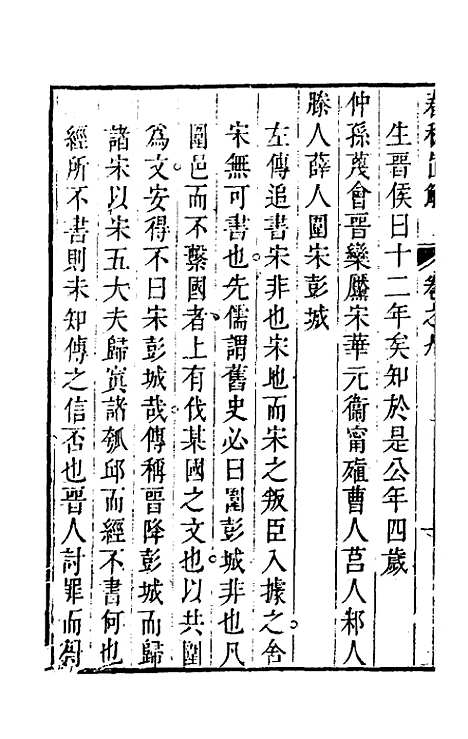 春秋直解 卷之九
生晉侯曰十二年矣知於是公年四歲
仲孫蔑會晉欒黶宋華元衞甯殖曹人莒人邾人
滕人薛人圍宋彭城
左傳追書宋非也宋地而宋之叛臣入據之舍
宋無可書也先儒謂舊史必曰圍彭城非也凡
圍邑而不繫國者上有伐某國之文也以共圍
爲文安得不曰宋彭城哉傳稱晉降彭城而歸
諸宋以宋五大夫歸寘諸瓠邱而經不書何也
經所不書則未知傳之信否也晉人討罪而